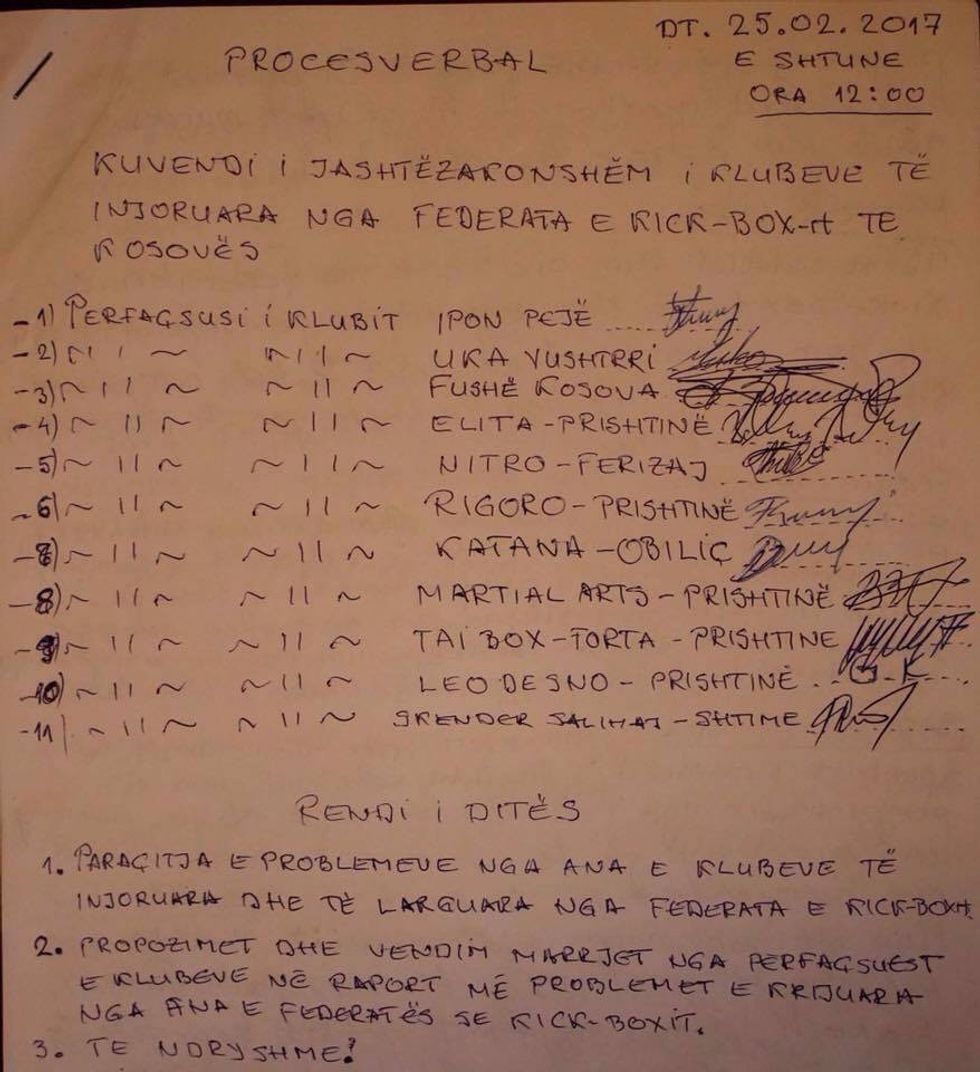 DT. 25.02.2017
PROCESVERBAL
E SHTUNE
ORA 12:00
KUVENDI I JASHTËZAKONSHËM I KLUBEVE TË
INJORUARA NGA FEDERATA E KICK-BOX-it TE
KOSOVËS
-1) PERFAQSUSI I KLUBIT IPON PEJË
-2) ~ 11 ~ ~ 11 ~ UKA VUSHTRRI
-3) ~ 11 ~ ~ 11 ~ FUSHË KOSOVA
-4) ~ 11 ~ ~ 11 ~ ELITA - PRISHTINË
-5) ~ 11 ~ ~ 11 ~ NITRO - FERIZAJ
-6) ~ 11 ~ ~ 11 ~ RIGORO - PRISHTINË
-7) ~ 11 ~ ~ 11 ~ KATANA - OBILIÇ
-8) ~ 11 ~ ~ 11 ~ MARTIAL ARTS - PRISHTINË
-9) ~ 11 ~ ~ 11 ~ TAI BOX - FORTA - PRISHTINE
-10) ~ 11 ~ ~ 11 ~ LEO DESNO - PRISHTINË G. K
-11) ~ 11 ~ ~ 11 ~ SKENDER SALIHAJ - SHTIME
RENDI I DITËS
1. PARAQITJA E PROBLEMEVE NGA ANA E KLUBEVE TË
INJORUARA DHE TË LARGUARA NGA FEDERATA E KICK-BOXit
2. PROPOZIMET DHE VENDIM MARRJET NGA PERFAQSUEST
E KLUBEVE NË RAPORT ME PROBLEMET E KRIJUARA
NGA ANA E FEDERATËS SE KICK-BOXIT.
3. TE NDRYSHME!